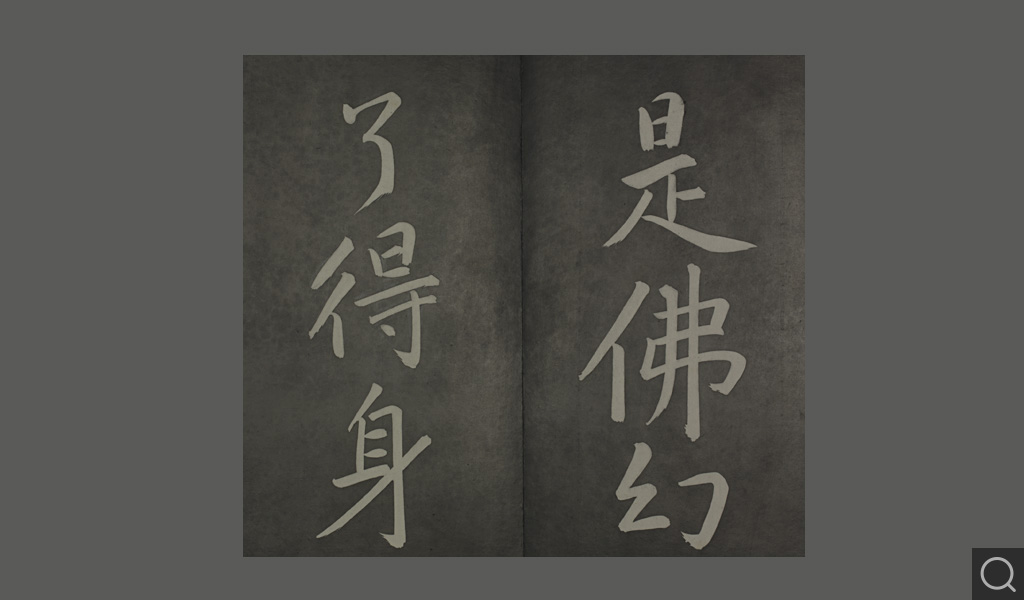 是佛幻
了得身